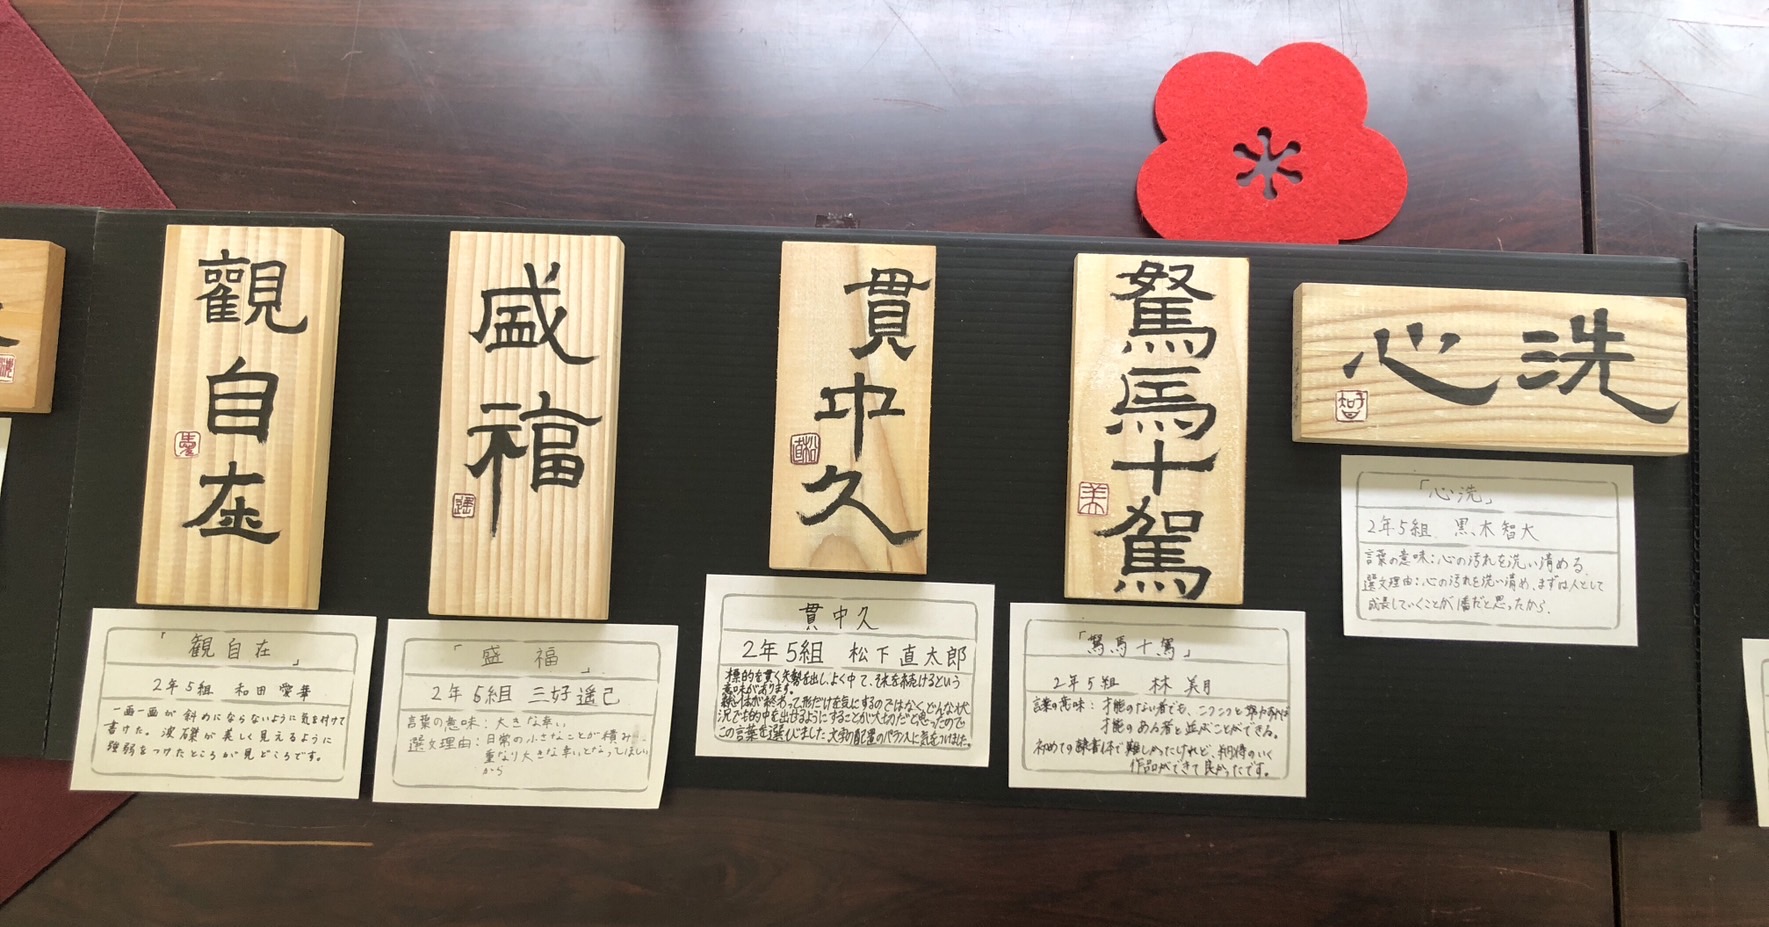 觀自在
「観自在」
2年5組 和田 愛華
一画一画が斜めにならないように気を付けて
書けた。波磔が美しく見えるように
強弱をつけたところが見どころです。
盛福
「盛福」
2年5組 三好遥己
言葉の意味：大きな幸い
選文理由：日常の小さなことが積み
重なり大きな幸いとなってほしい
から
貫中久
貫中久
2年5組 松下直太郎
標的を貫く矢勢を出し、よく中て、それを続けるという
意味があります。
形だけを気にするのではなく、どんな状
況でも的中を出せるようにすることが大切だと思ったので
この言葉を選びました。文字の配置のバランスに気をつけました。
駑馬十駕
「駑馬十駕」
2年5組 林 美月
言葉の意味：才能のない者でも、コツコツと努力すれば
才能のある者と並ぶことができる。
初めての隷書体で難しかったけれど、納得のいく
作品ができて良かったです。
心洗
「心洗」
2年5組 黒木智大
言葉の意味：心の汚れを洗い清める
選文理由：心の汚れを洗い清め、まずは人として
成長していくことが大事だと思ったから、